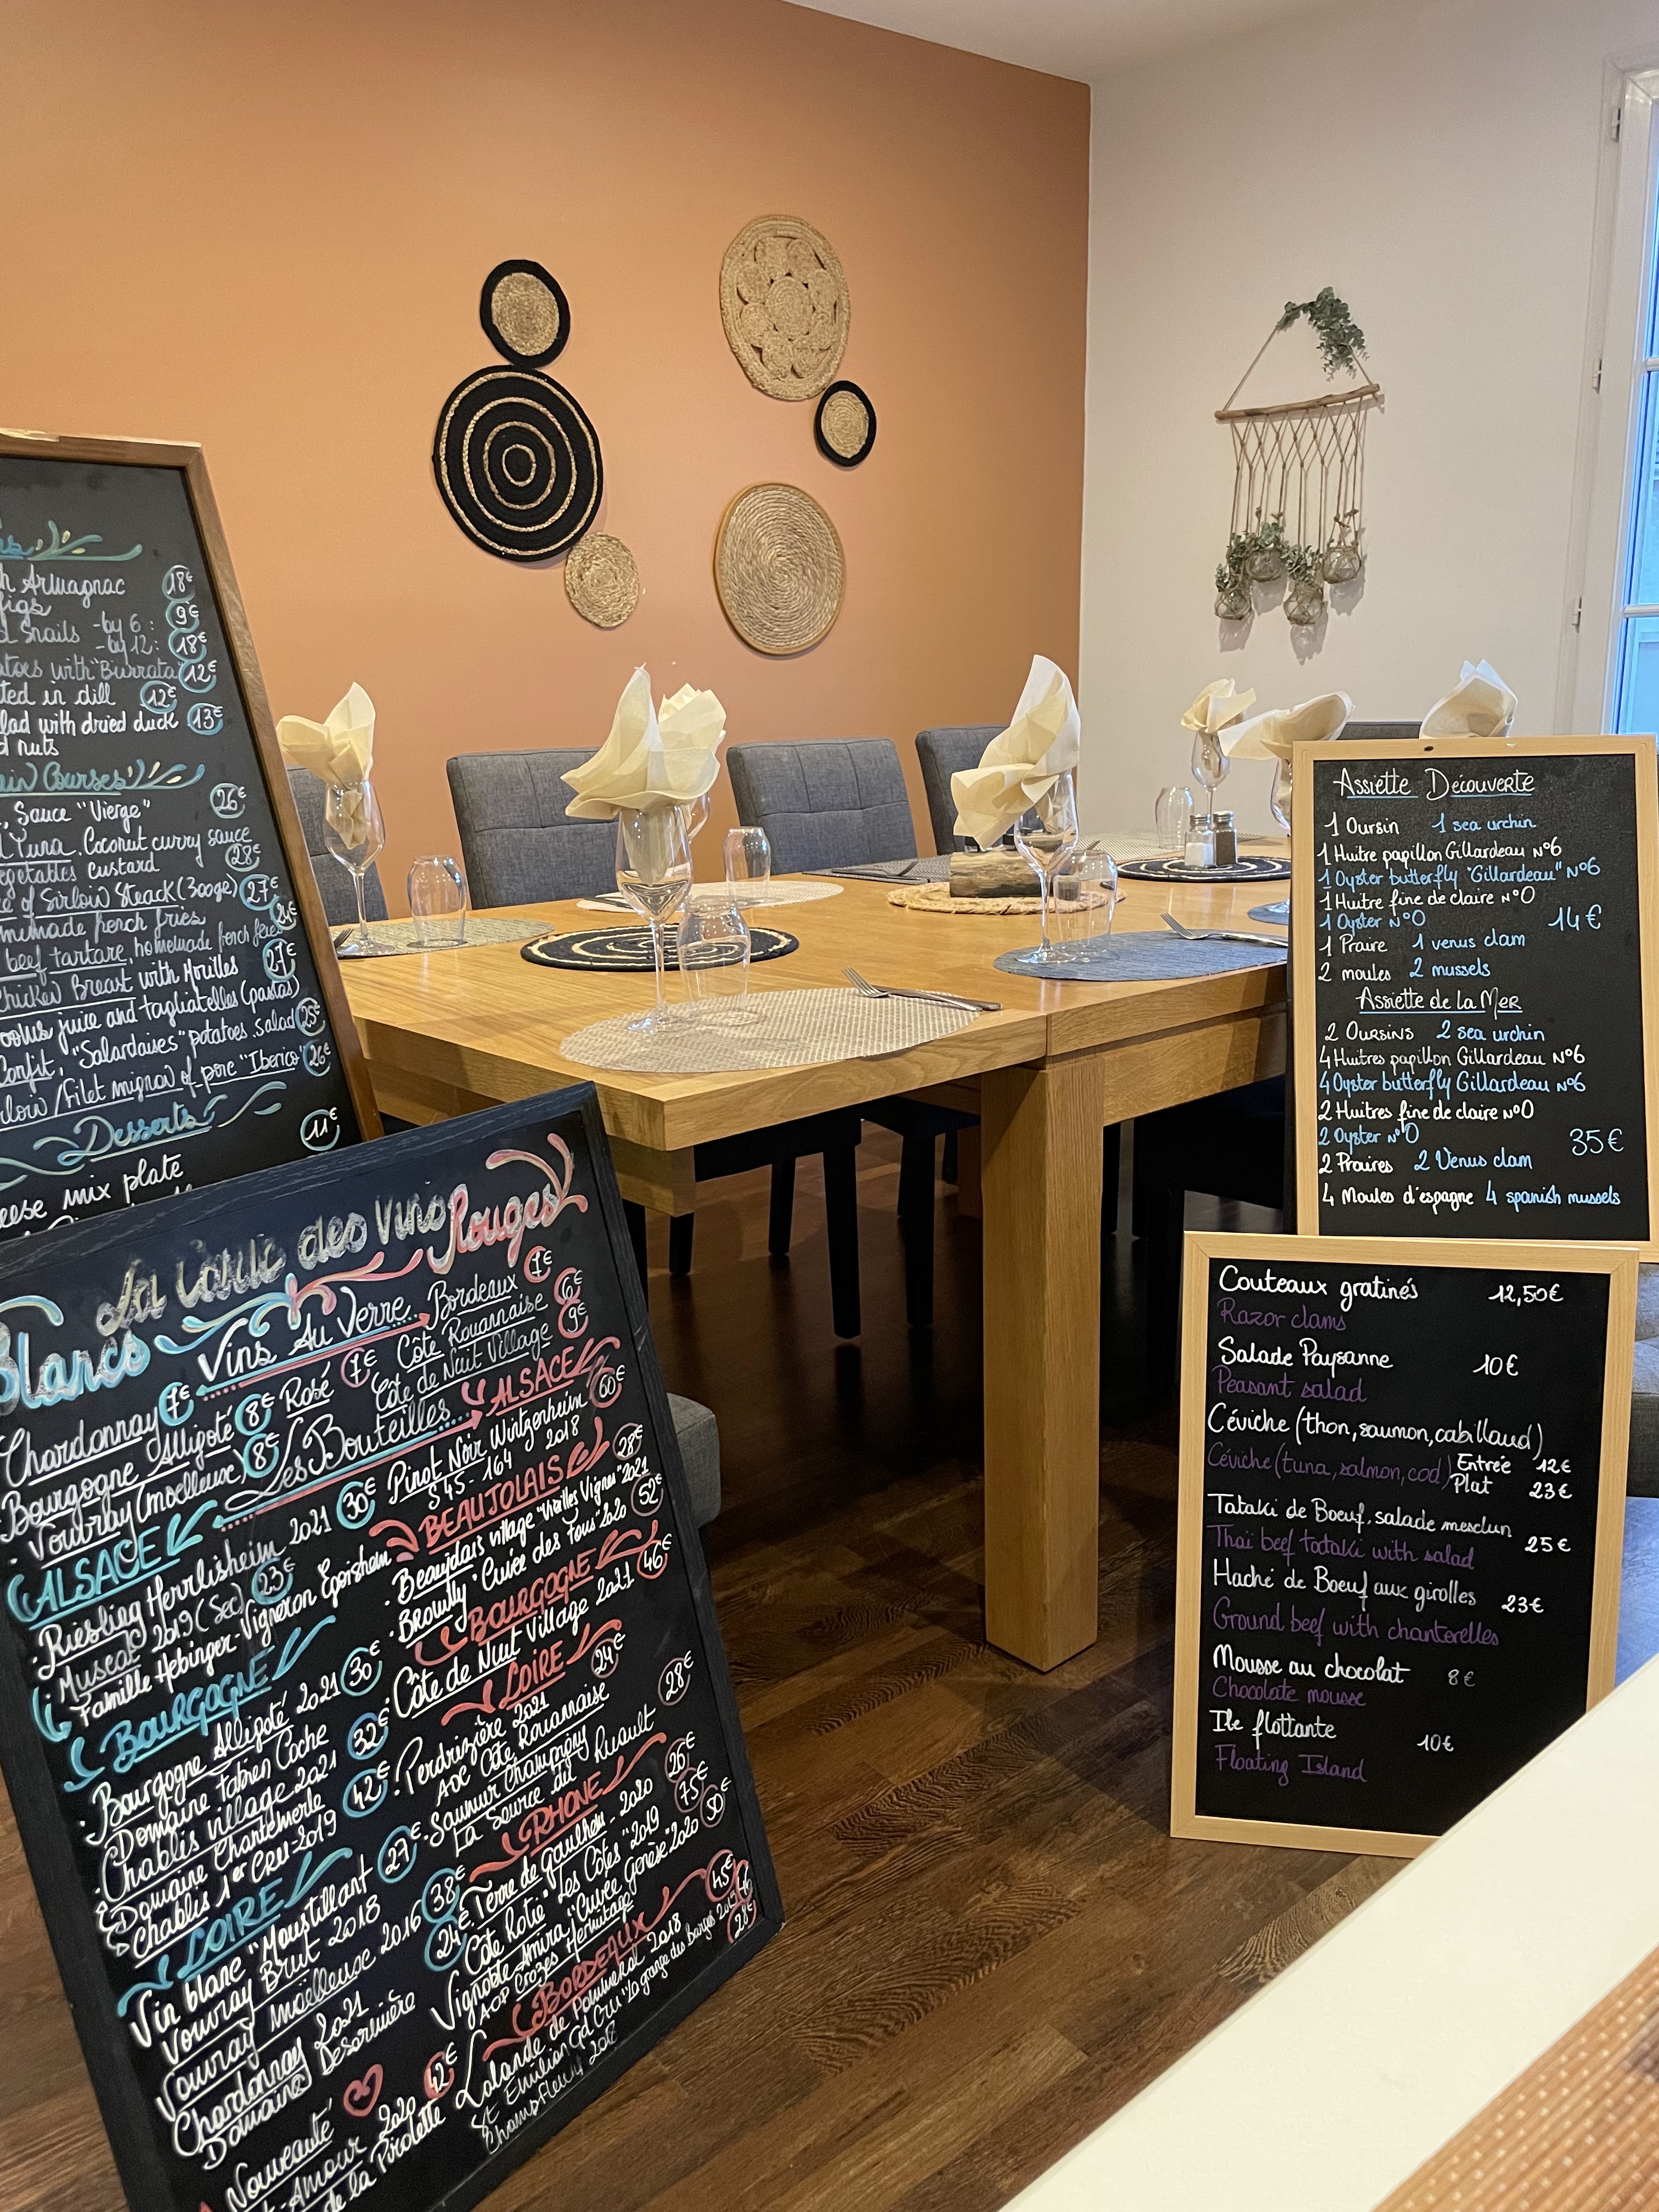 h Armagnac 18€
figs 9€
d Snails -by 6 :
-by 12: 18€
atoes with "Burrata" 12€
ted in dill 12€
lad with dried duck 13€
d nuts
in Courses
, Sauce "Vierge" 26€
Tuna, Coconut curry sauce
egetables custard 28€
e of Sirloin Steack (300ge) 27€
memade french fries
beef tartare, homemade french fries
Chicken Breast with Morilles 27€
ooms juice and tagliatelles (pastas)
Confit, "Salardaises" potatoes. salad 25€
rloin / Filet mignon of porc "Iberico" 26€
Desserts
eese mix plate 11€
La carte des Vins
Blancs
Rouges
Vins Au Verre
Chardonnay 7€
Bourgogne Alligoté 8€
Vouvray (moelleux) 8€
Rosé 7€
Bordeaux 7€
Côte Roannaise 6€
Côte de Nuit Village 9€
Les Bouteilles
ALSACE
Riesling Herrlisheim 2021 30€
Muscat 2019 (Sec) 23€
Famille Hebinger-Vigneron Egersheim
BOURGOGNE
Bourgogne Alligoté 2021 30€
Domaine Fabien Coche
Chablis village 2021 32€
Domaine Chantemerle
Chablis 1er CRU 2019 42€
LOIRE
Vin blanc "Moustillant" 27€
Vouvray Brut 2018
Vouvray moëlleuse 2016 38€
Chardonnay 2021 24€
Domaine Désormière
Nouveauté
t-Amour 2020 42€
de la Pirolette
ALSACE
Pinot Noir Wintzenheim 60€
S45-164 2018
BEAUJOLAIS
Beaujolais village "Vieilles Vignes" 2021 28€
Brouilly "Cuvée des Fous" 2020 52€
BOURGOGNE
Côte de Nuit Village 2021 46€
LOIRE
Perdrizière 2021 24€
AOC Côte Roannaise
Saumur Champigny 28€
La Source du Ruault
RHONE
Terre de gaulhem - 2020 26€
Côte Rotie "Les Côtes" 2019 75€
Vignoble Amira "Cuvée Genèse" 2020 50€
AOP Crozes Hermitage
BORDEAUX
Lalande de Pommerol 2018 45€
St Emilion Gd Cru "La grange des Barges
Champs Fleury 28€
Assiette Découverte
1 Oursin 1 sea urchin
1 Huitre papillon Gillardeau N°6
1 Oyster butterfly "Gillardeau" N°6
1 Huitre fine de claire N°0
1 Oyster N°0 14€
1 Praire 1 venus clam
2 moules 2 mussels
Assiette de La Mer
2 Oursins 2 sea urchin
4 Huitres papillon Gillardeau N°6
4 Oyster butterfly Gillardeau N°6
2 Huitres fine de claire N°0
2 Oyster N°0 35€
2 Praires 2 Venus clam
4 Moules d'espagne 4 spanish mussels
Couteaux gratinés 12,50€
Razor clams
Salade Paysanne 10€
Peasant salad
Céviche (thon, saumon, cabillaud)
Céviche (tuna, salmon, cod) Entrée 12€
Plat 23€
Tataki de Boeuf, salade mesclun
Thaï beef tataki with salad 25€
Haché de Boeuf aux girolles 23€
Ground beef with chanterelles
Mousse au chocolat 8€
Chocolate mousse
Ile flottante 10€
Floating Island